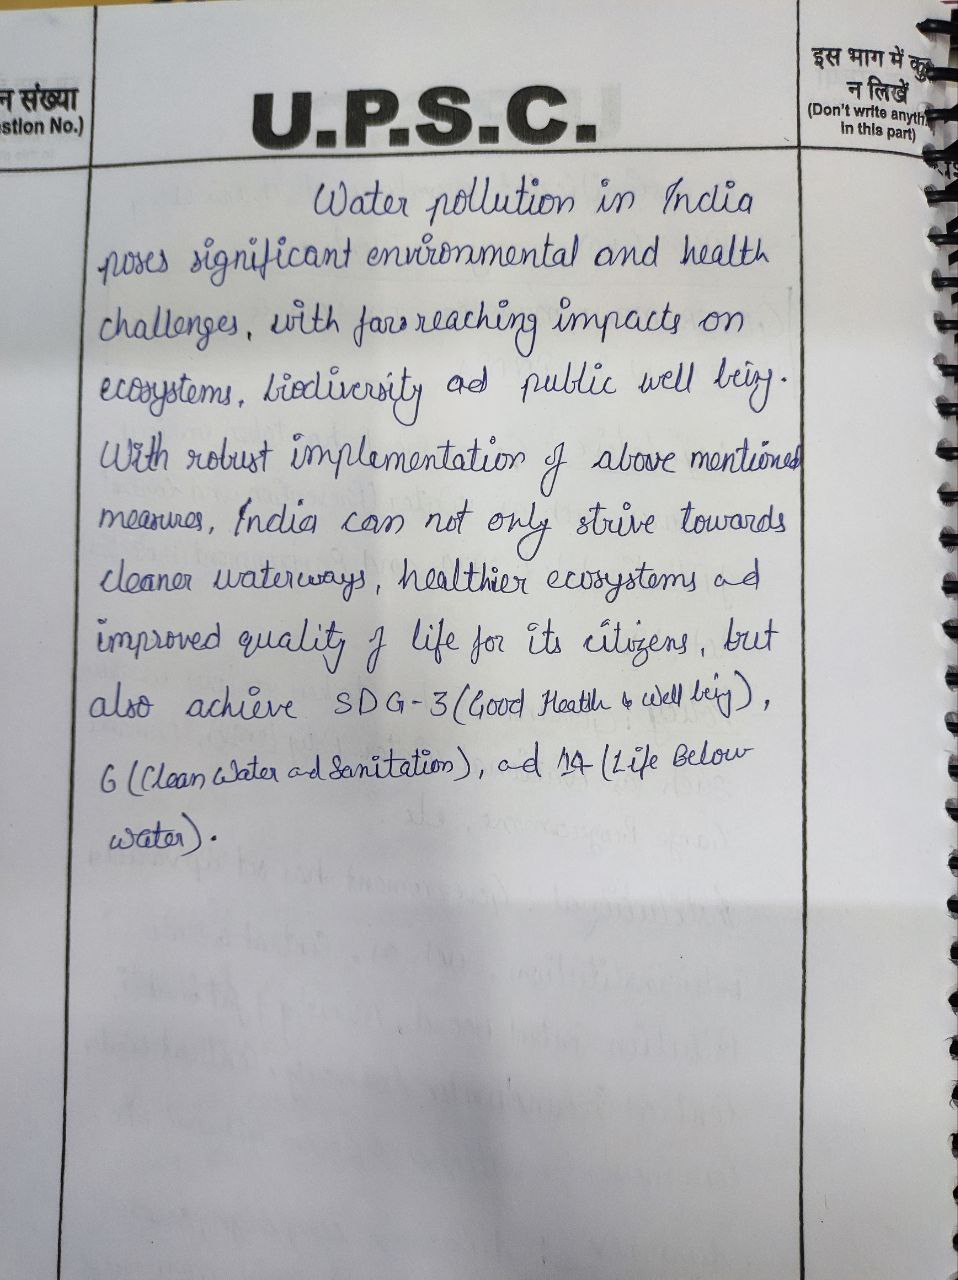 न संख्या
stion No.)
U.P.S.C.
इस भाग में कुछ
न लिखें
(Don't write anyth
in this part)
Water pollution in India
poses significant environmental and health
challenges, with far reaching impacts on
ecosystems, biodiversity ad public well being.
With robust implementation of above mentioned
measures, India can not only strive towards
cleaner waterways, healthier ecosystems ad
improved quality of life for its citizens, but
also achieve SDG-3 (Good Health & Well being),
6 (Clean Water ad Sanitation), ad 14 (Life Below
water).